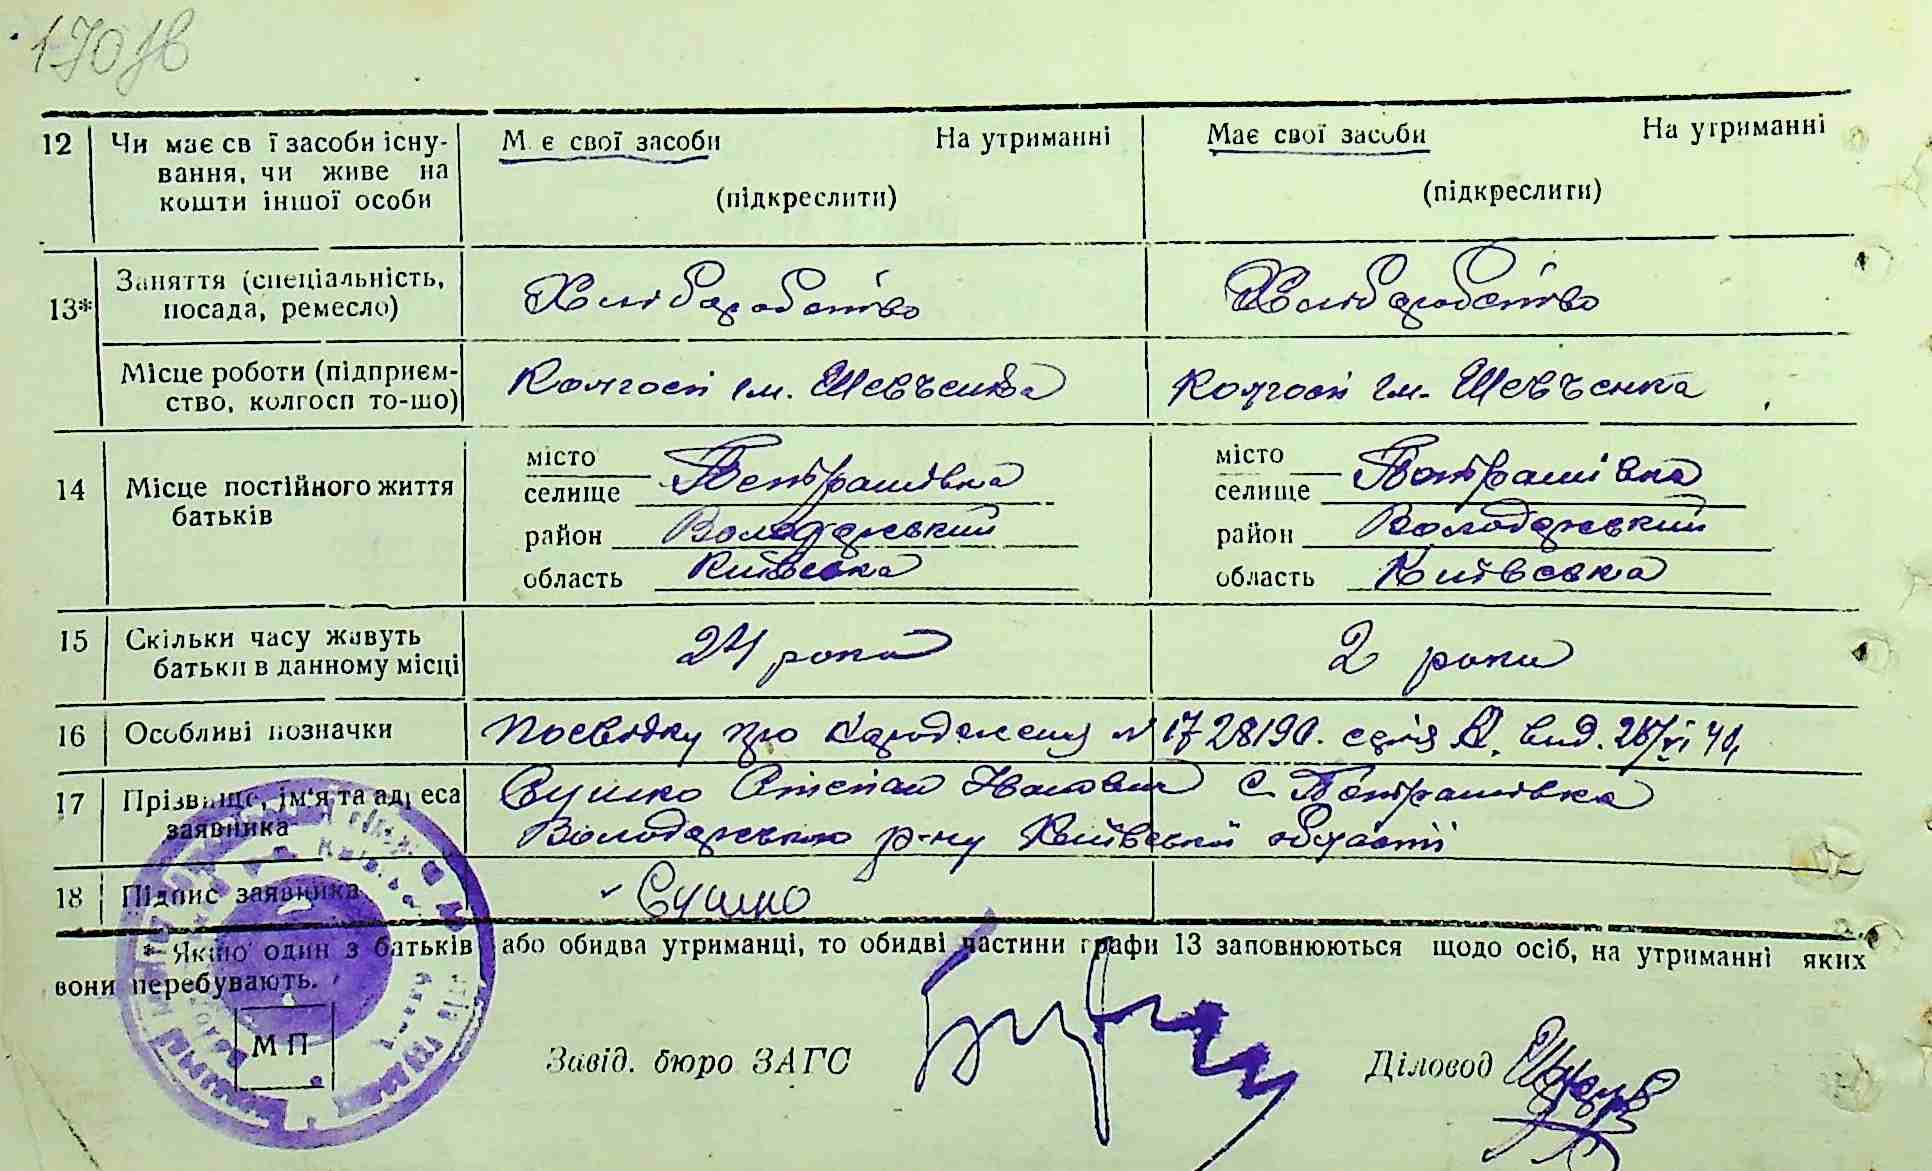 12 Чи має св ї засоби існу- М є свої засоби На утриманні Має свої засоби На утриманні
вання, чи живе на (підкреслити) (підкреслити)
кошти іншої особи
13* Заняття (спеціальність, Хліборобство Хліборобство
посада, ремесло)
Місце роботи (підприєм- Колгосп ім. Шевченка Колгосп ім. Шевченка
ство, колгосп то-що)
місто місто
14 Місце постійного життя селище Петрашівка селище Петрашівка
батьків район Володарський район Володарський
область Київська область Київська
15 Скільки часу живуть 24 роки 2 роки
батьки в данному місці
16 Особливі позначки Посвідку про народження № 1728190. серія А. вид. 28/VI 40
17 Прізвище, ім'я та адреса Сушко Степан Іванович С. Петрашівка
заявника Володарського р-ну Київської області
18 Підпис заявника Сушко
* Якщо один з батьків або обидва утриманці, то обидві частини графи 13 заповнюються щодо осіб, на утриманні яких
вони перебувають.
М П Завід. бюро ЗАГС Діловод